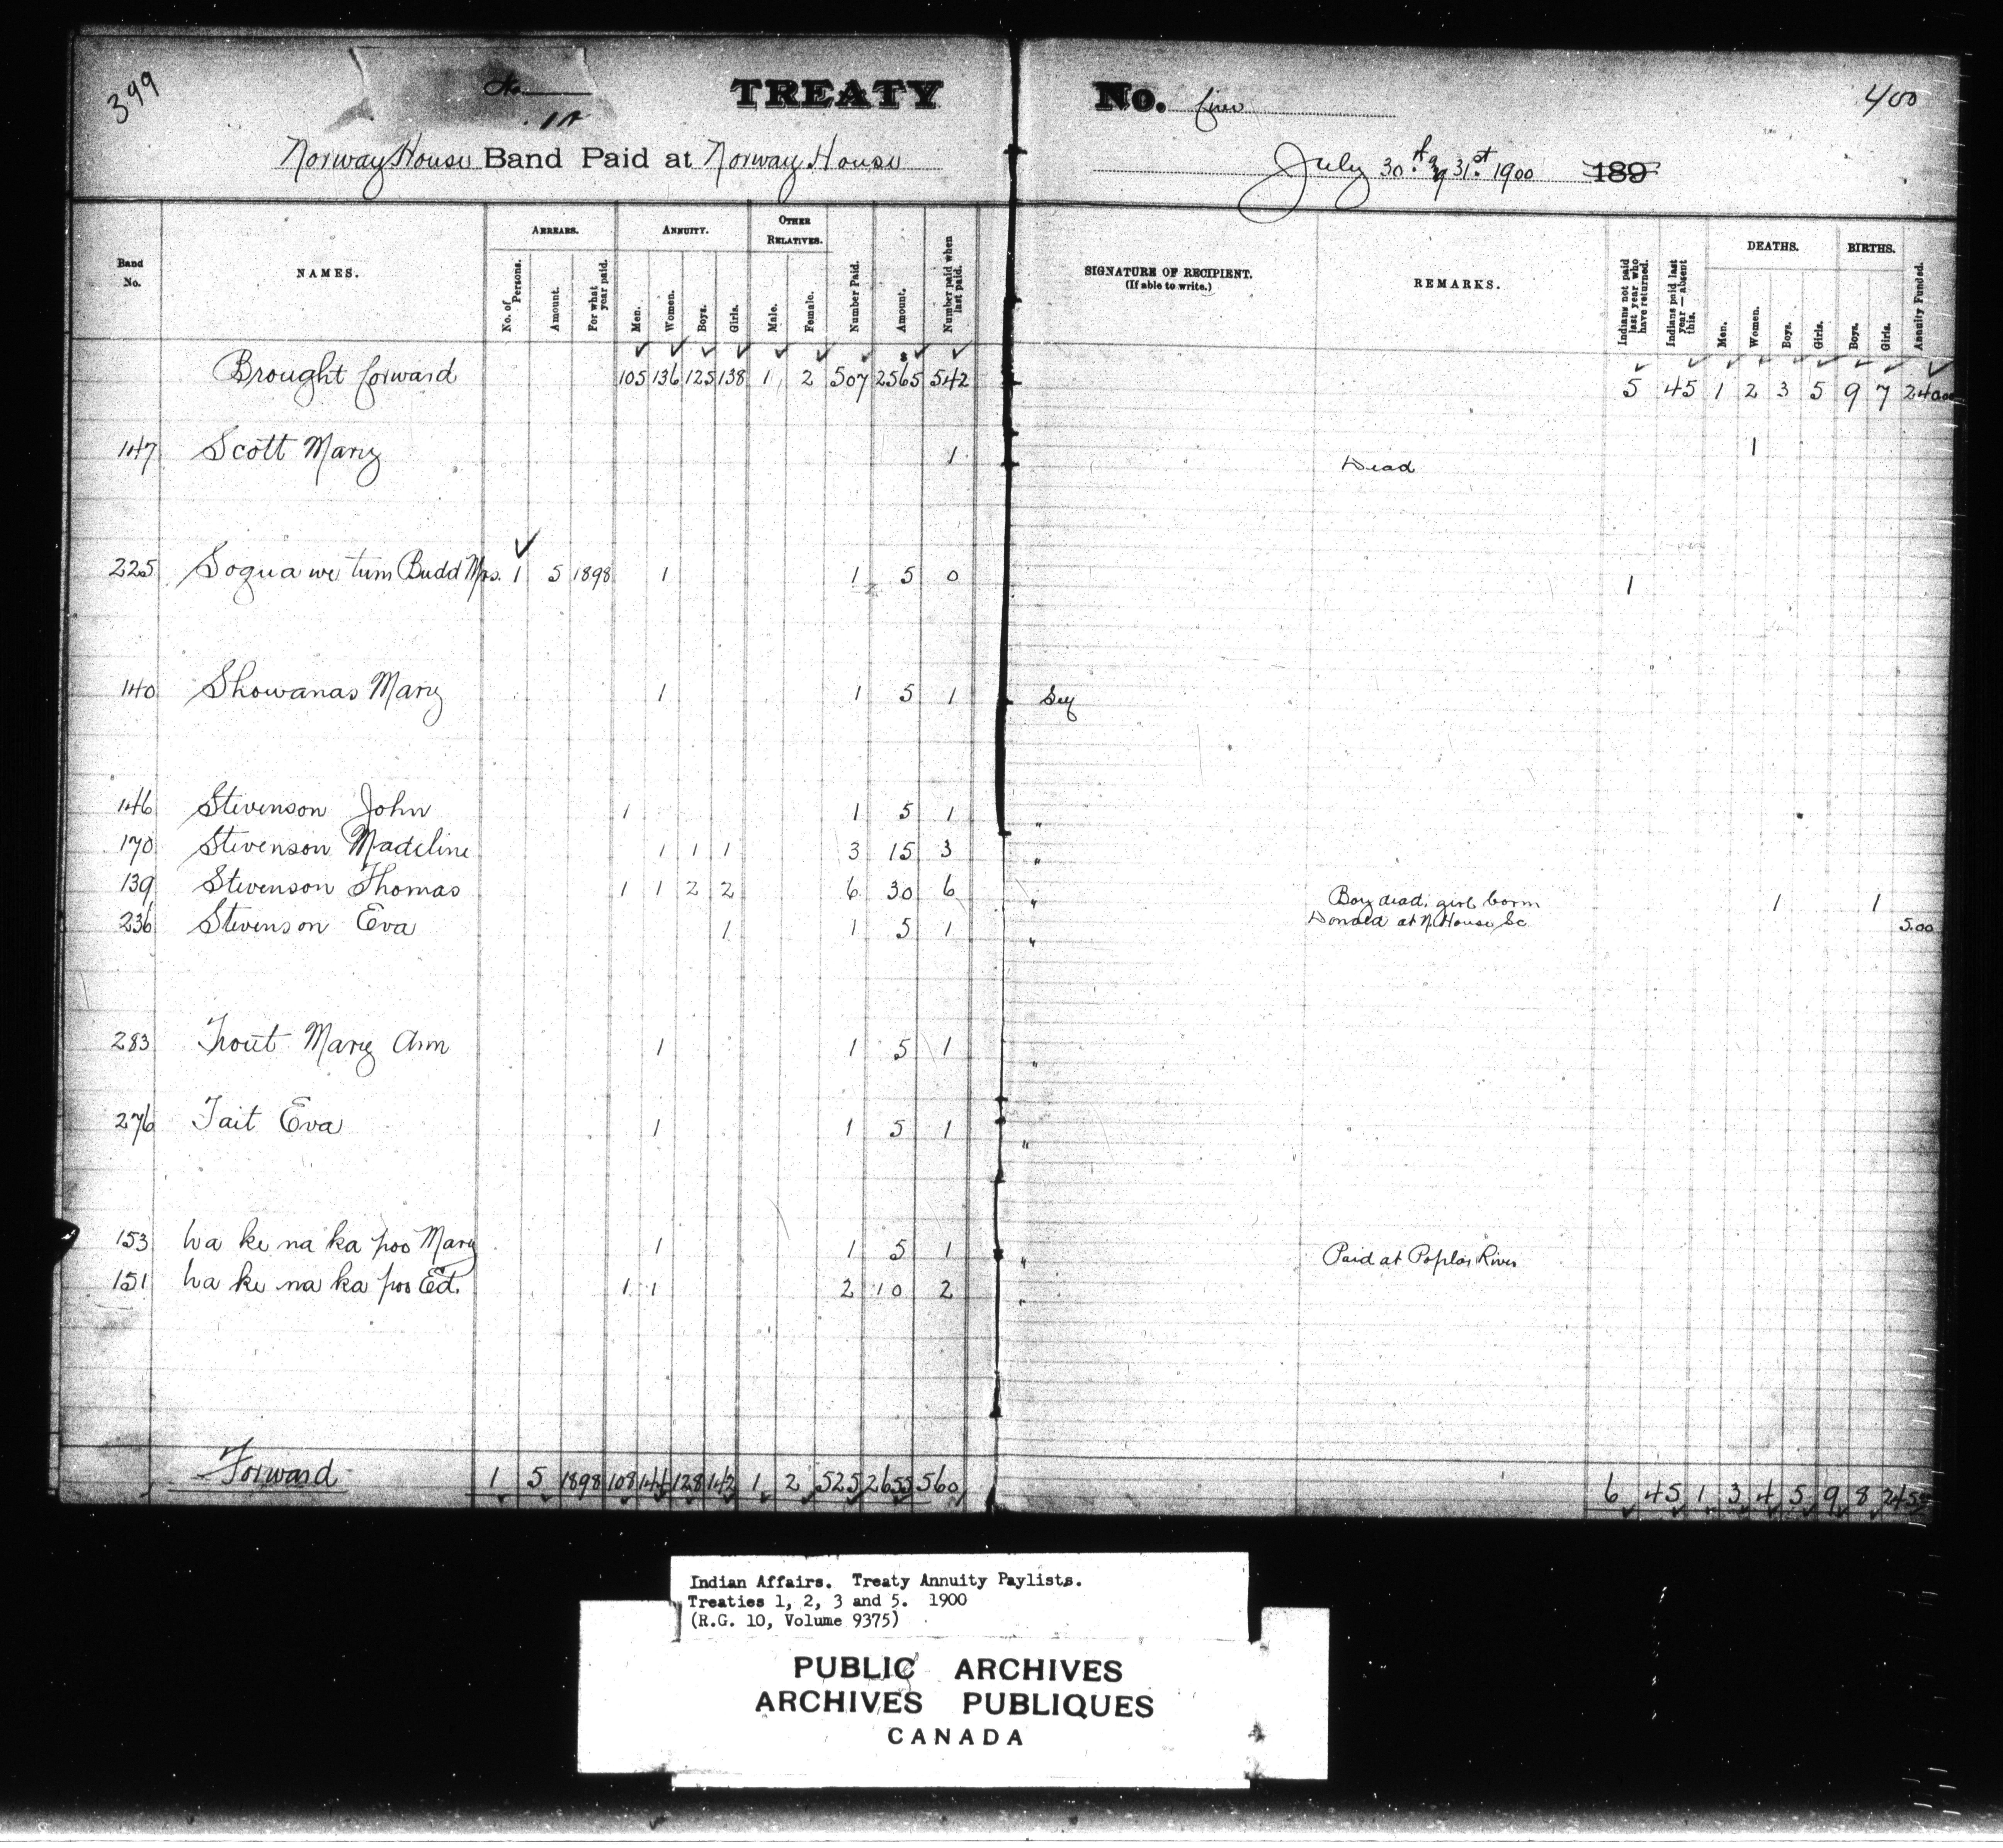 399
No
TREATY No. five
400
Norway House Band Paid at Norway House
July 30th & 31st 1900 189
Band No.
NAMES.
ARREARS.
No. of Persons.
Amount.
For what year paid.
ANNUITY.
Men.
Women.
Boys.
Girls.
OTHER RELATIVES.
Male.
Female.
Number Paid.
Amount.
Number paid when last paid.
SIGNATURE OF RECIPIENT.
(If able to write.)
REMARKS.
Indians not paid last year who have returned.
Indians paid last year — absent this.
DEATHS.
Men.
Women.
Boys.
Girls.
BIRTHS.
Boys.
Girls.
Annuity Funded.
Brought forward 105 136 125 138 1 2 507 $2565 542 5 45 1 2 3 5 9 7 240.00
147 Scott Mary 1 Dead 1
225 Soqua we tum Budd Mrs. 1 5 1898 1 1 5 0 1
140 Showanas Mary 1 1 5 1 Self
146 Stevenson John 1 1 5 1 "
170 Stevenson Madeline 1 1 1 3 15 3 "
139 Stevenson Thomas 1 1 2 2 6 30 6 " Boy dead, girl born 1 1
236 Stevenson Eva 1 1 5 1 " Donald at N. House Sc 5.00
283 Trout Mary Ann 1 1 5 1 "
276 Tait Eva 1 1 5 1 "
153 Wa ke na ka poo Mary 1 1 5 1 " Paid at Poplar River
151 Wa ke na ka poo Ed. 1 1 2 10 2 "
Forward 1 5 1898 108 144 128 142 1 2 525 2655 560 6 45 1 3 4 5 9 8
Indian Affairs. Treaty Annuity Paylists.
Treaties 1, 2, 3 and 5. 1900
(R.G. 10, Volume 9375)
PUBLIC ARCHIVES
ARCHIVES PUBLIQUES
CANADA